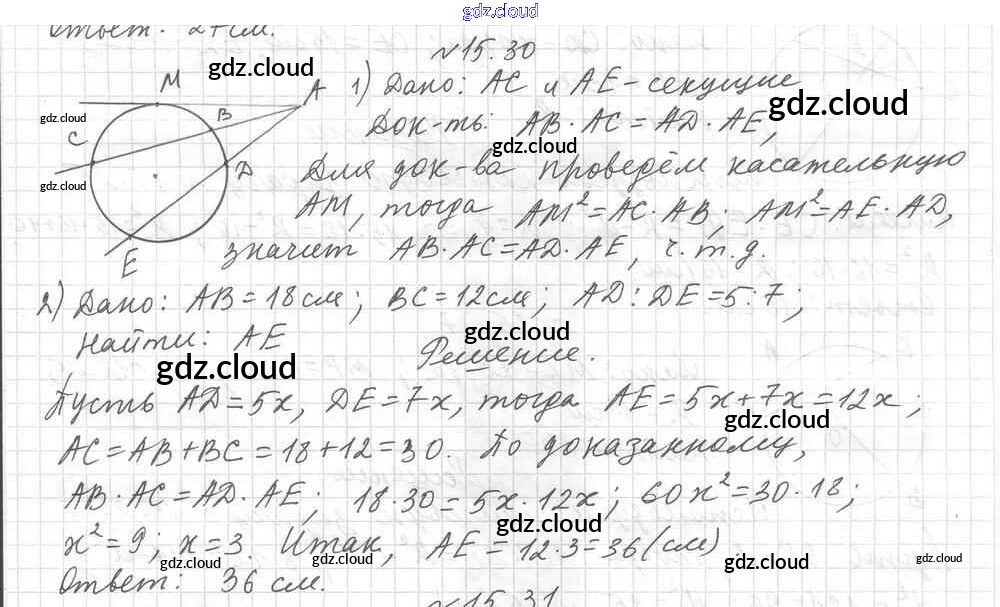 gdz.cloud
Ответ: 27 см.
№15.30
M
gdz.cloud
A
1) Дано: AC и AE - секущие
gdz.cloud
B
gdz.cloud
C
Док-ть: AB · AC = AD · AE,
gdz.cloud
D
Для док-ва проведём касательную
gdz.cloud
AM, тогда AM² = AC · AB; AM² = AE · AD,
значит AB · AC = AD · AE, ч.т.д.
E
2) Дано: AB = 18 см; BC = 12 см; AD : DE = 5 : 7;
Найти: AE
gdz.cloud
Решение.
gdz.cloud
Пусть AD = 5x, DE = 7x, тогда AE = 5x + 7x = 12x;
gdz.cloud
AC = AB + BC = 18 + 12 = 30. По доказанному,
AB · AC = AD · AE; 18 · 30 = 5x · 12x; 60x² = 30 · 18;
gdz.cloud
x² = 9; x = 3. Итак, AE = 12 · 3 = 36 (см)
gdz.cloud
gdz.cloud
gdz.cloud
Ответ: 36 см.
№15.31